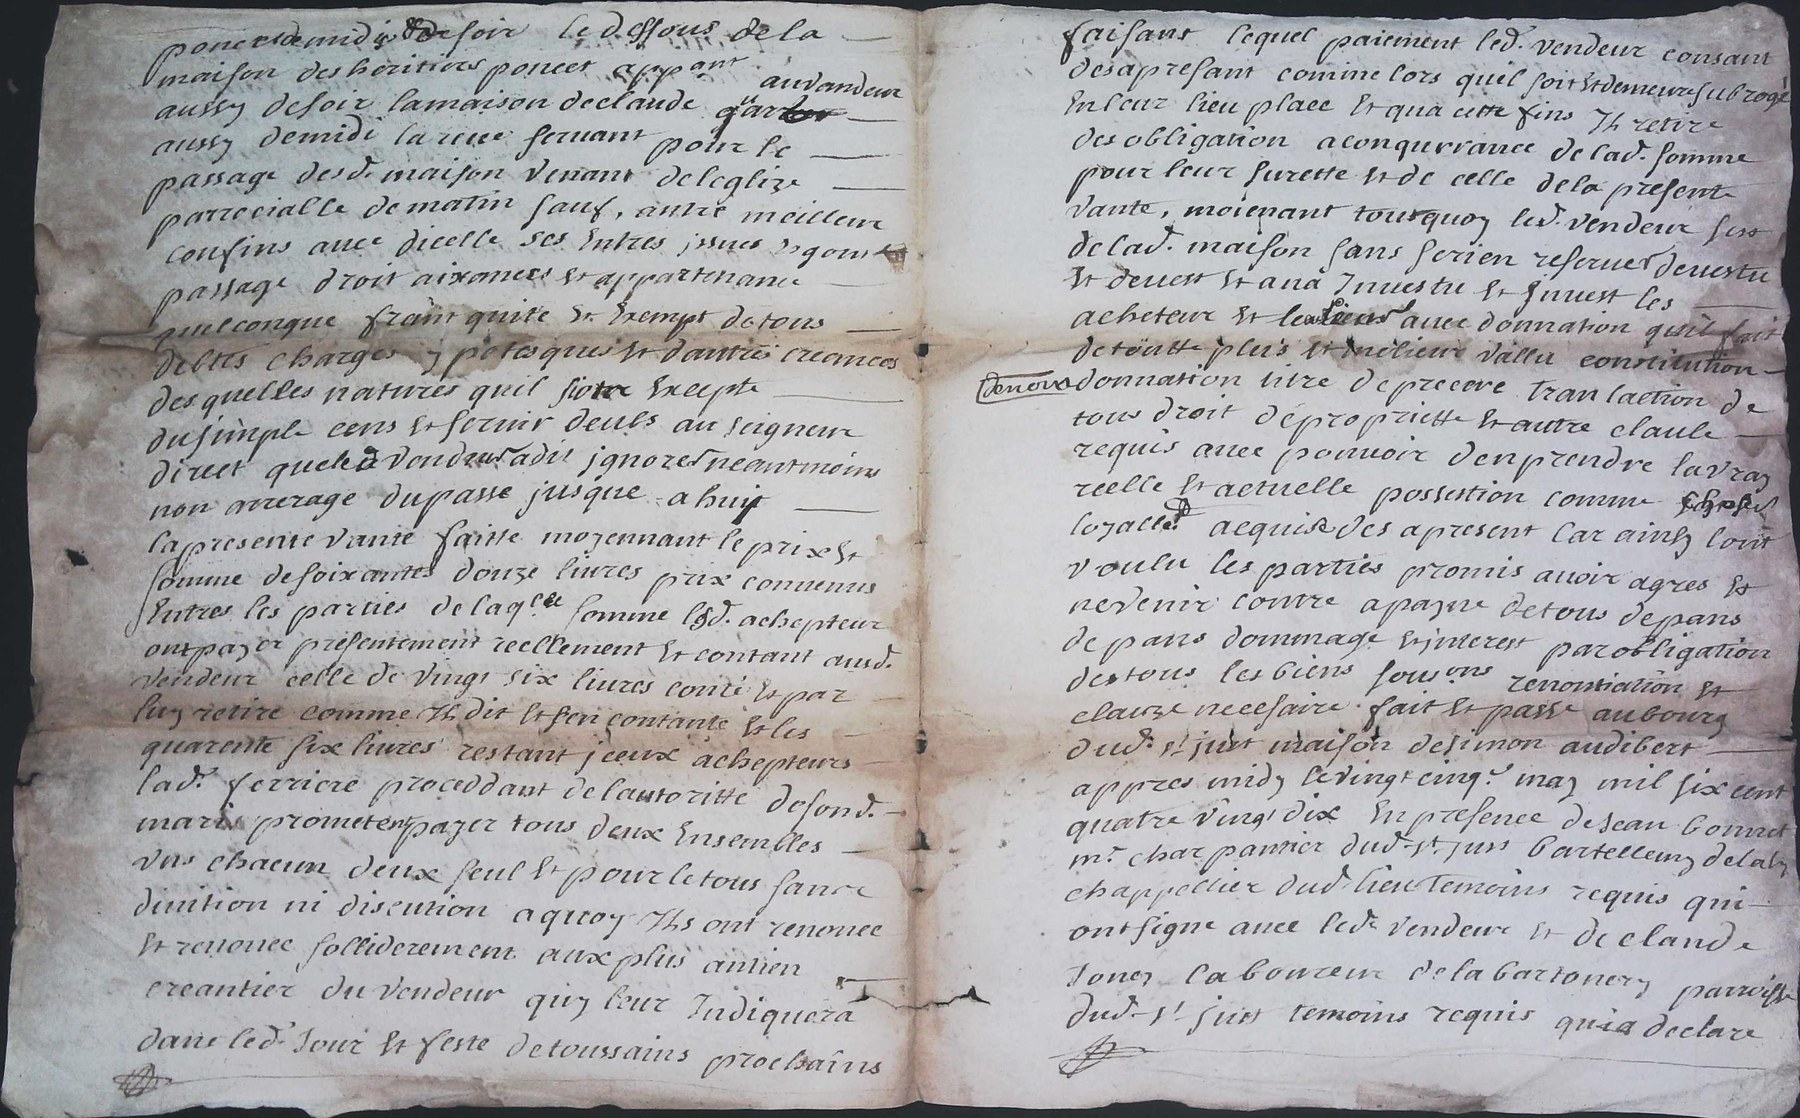 poncet de midi & de soir le dessous de la
maison des heritiers poncet appant au vandeur
aussy de soir la maison de claude
aussy de midi la rue servant pour le
passage desd. maison venant de leglize
parrecialle de matin sauf, autre meilleur
confins avec dicelle ses entres issues
passage droit aixances et appartenance
quelconque franc quite et exempt de tous
debtes charges ypotesques et dautres creances
des quelles natures quil soit excepte
du simple cens et servis deubs au seigneur
direct que led vendeur a dit jgnores neantmoins
non arrerage du passe jusque a huy
la presente vante faitte moyennant le prix et
somme de soixantes douze livres prix convenus
entres les parties de laqlle somme lesd. achepteur
ont payer presentement reellement et contant aud.
vendeur celle de vingt six livres conté et par
luy retiré comme Il dit et sen contante et les
quarente six livres restant jceux achepteurs
lad. ferriere proceddant de lautoritte de sond.
mari prometent payer tous deux ensembles
un chacun deux seul et pour le tous sance
divition ni discution a quoy Ils ont renonce
et renonce sollidere­ment aux plus antien
creantier du vendeur quy leur Indiquera
dans led. Jour et feste de toussains prochains
faisant lequel paiement led. vendeur consant
des apresant comme lors quil soit et demeure subrogé
en leur lieu place et qua cette fins Il retire
des obligation a conqurrance de lad. somme
pour leur surette et de celle de la presente
vante, moienant tous quoy led. vendeur sest
de lad. maison sans se rien reserver devestu
et devest et en a Investu et Invest les
acheteur et les siens avec donnation quil fait
de toutte plus et melieur vallu constitution
de nom donnation titre de precere translaction de
tous droit de propriette et autre clause
requis avec pouvoir den prendre la vray
reelle et actuelle possestion comme chose
loyalle acquise des apresent car ainsy lont
voulu les parties promis avoir agres et
ne venir contre a payne de tous depans
depans dommage et jnterest par obligation
des tous les biens sousons renontiation et
clauze necesaire fait et passé au bourg
dud. st just maison de simon audibert
appres midy le vingt cinq. may mil six cent
quatre vingt dix en presence de Jean bonnet
m.r charpantier dud. st just bartellemy delaly
chappellier dud lieu temoins requis qui
ont signe avec led. vendeur et de claude
Jones laboureur de la bartonery parroisse
dud. st just temoins requis qui a declare